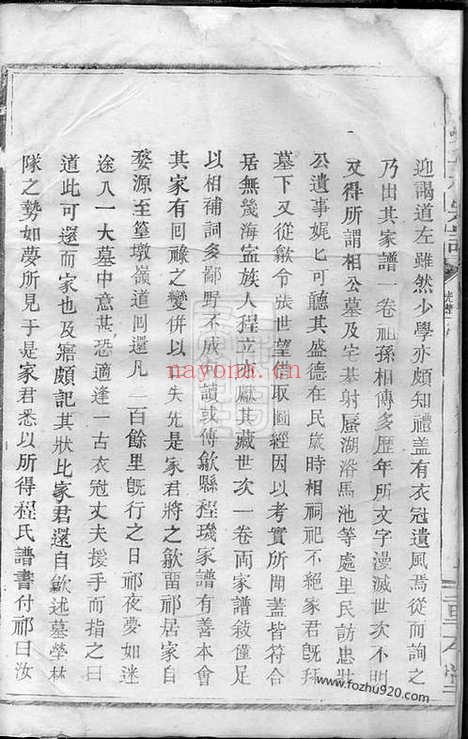 迎謁道左雖然少學亦頗知禮蓋有衣冠遺風焉從而詢之
乃出其家譜一卷祖孫相傳多歷年所文字漫滅世次不明
又得所謂相公墓及宅基射蜃湖浴馬池等處里民訪忠壯
公遺事娓娓可聽其盛德在民歲時相祠祀不絕家君旣拜
墓下又從歙令張世望借取圖經因以考實所聞蓋皆符合
居無幾海寧族人程立獻其藏世次一卷兩家譜敘僅足
以相補詞多鄙野不成句讀或傳歙縣程璣家譜有善本會
其家有回祿之變併以失先是家君將之歙畱祁居家自
婺源至篁墩嶺道回還凡一百餘里旣行之日祁夜夢如迷
途入一大墓中意甚恐適逢一古衣冠丈夫援手而指之曰
道此可還而家也及寤頗記其狀比家君還自歙述墓塋林
隊之勢如夢所見于是家君悉以所得程氏譜書付祁曰汝
nayona.cn
www.fozhu920.com